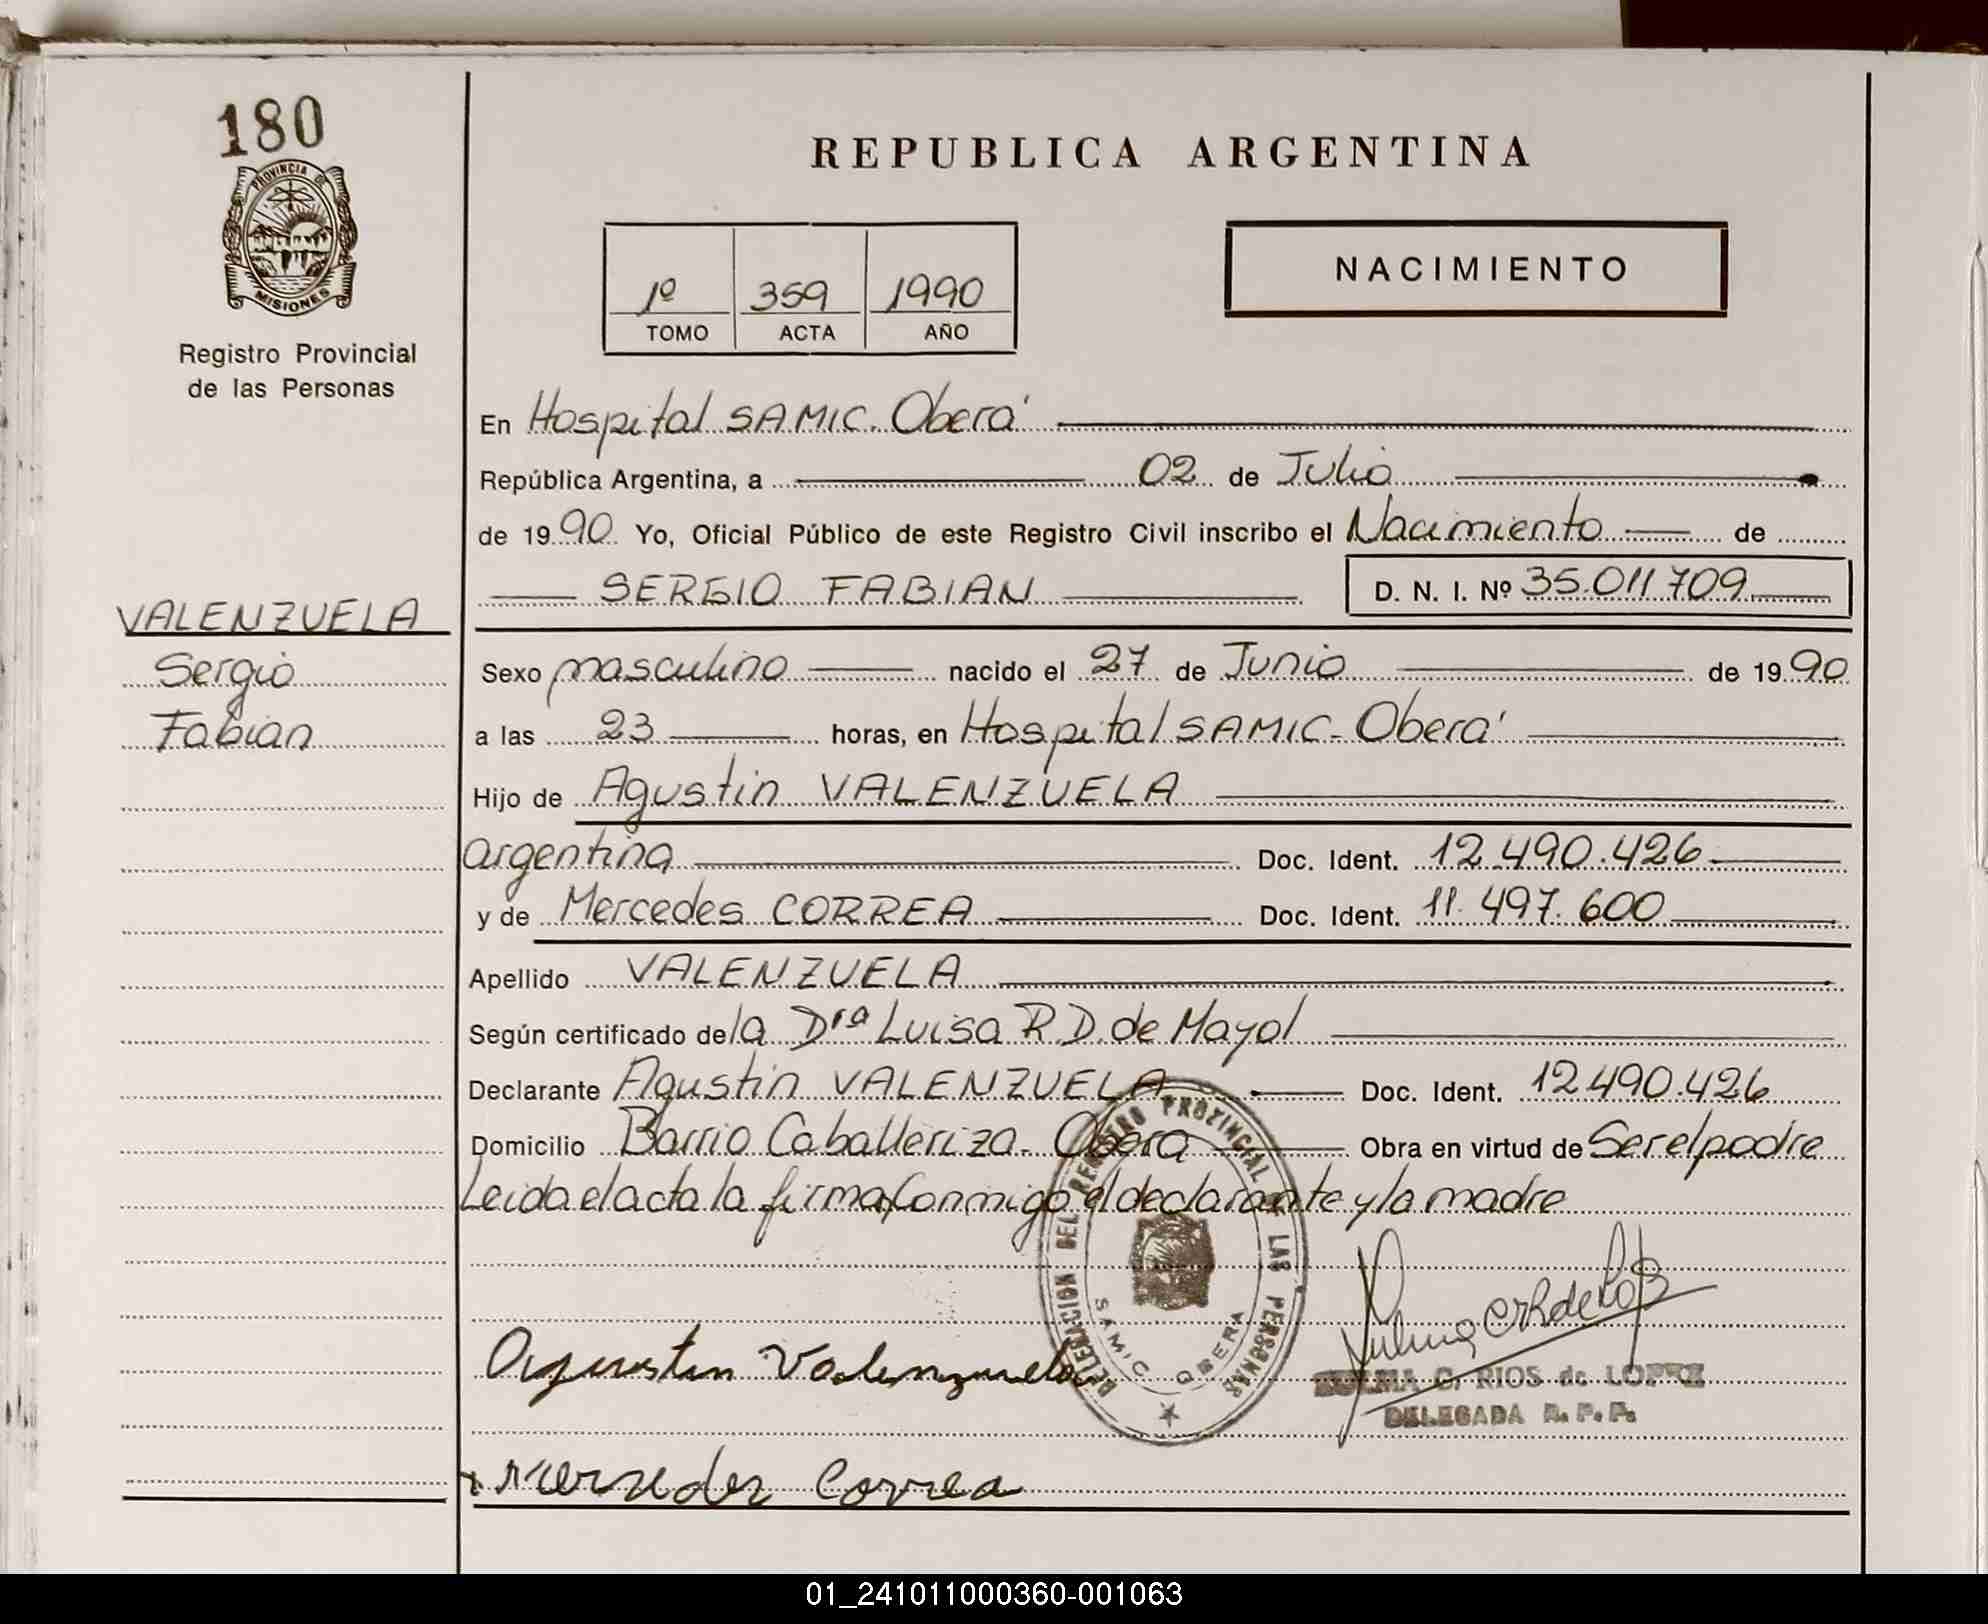 180
PROVINCIA DE
MISIONES
Registro Provincial
de las Personas
VALENZUELA
Sergio
Fabian
REPUBLICA ARGENTINA
1º 359 1990
TOMO ACTA AÑO
NACIMIENTO
En Hospital SAMIC. Oberá
República Argentina, a 02 de Julio
de 1990 Yo, Oficial Público de este Registro Civil inscribo el Nacimiento de
SERGIO FABIAN D. N. I. Nº 35.011.709
Sexo masculino nacido el 27 de Junio de 1990
a las 23 horas, en Hospital SAMIC - Oberá
Hijo de Agustin VALENZUELA
argentina Doc. Ident. 12.490.426
y de Mercedes CORREA Doc. Ident. 11.497.600
Apellido VALENZUELA
Según certificado de la Dra Luisa R.D. de Mayol
Declarante Agustin VALENZUELA Doc. Ident. 12.490.426
Domicilio Barrio Caballeriza - Obera Obra en virtud de Ser el padre
Leida el acta la firman Conmigo el declarante y la madre
DELEGACION DEL REGISTRO PROVINCIAL DE LAS PERSONAS
SAMIC OBERA
Agustin Valenzuela
ZULMA C. RIOS de LOPEZ
DELEGADA R. P. P.
Mercedes Correa
01_241011000360-001063